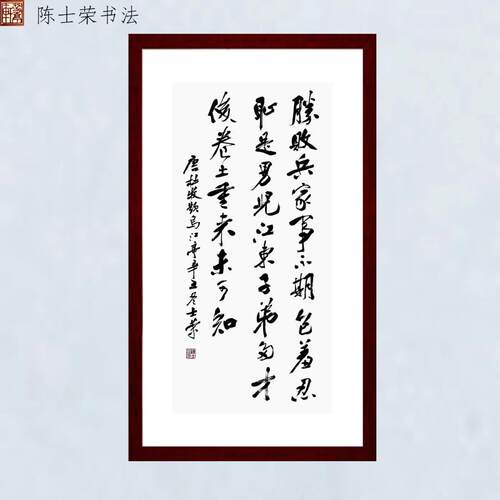 陈士荣书法
勝敗兵家事不期包羞忍
恥是男兒江東子弟多才
俊卷土重来未可知
唐杜牧題烏江亭辛丑冬士榮